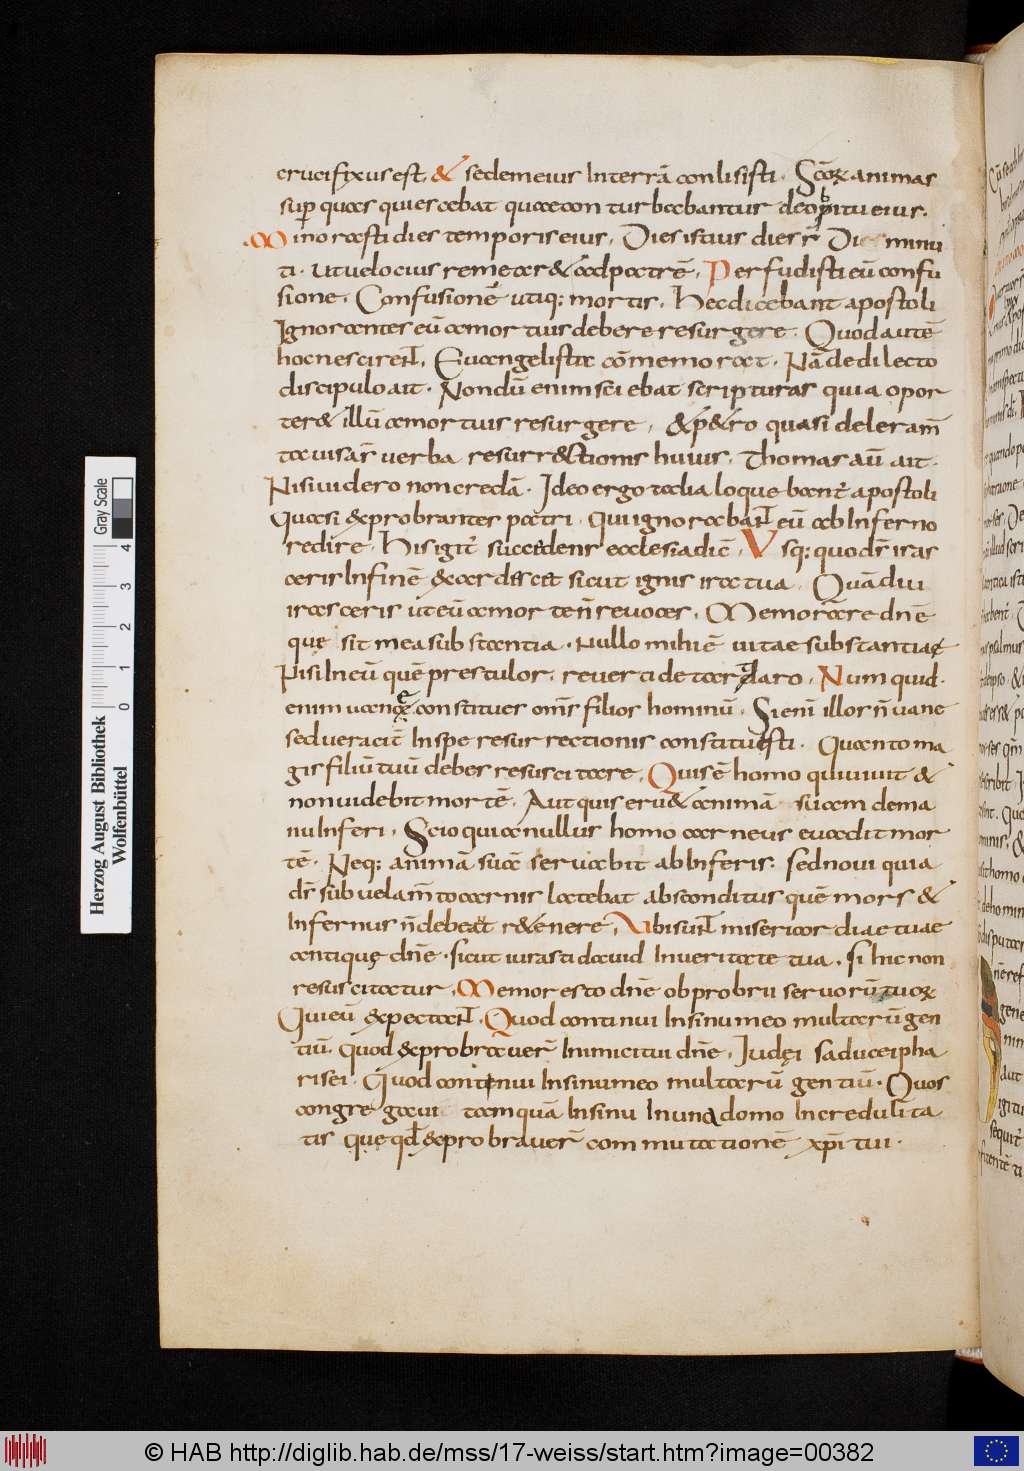 crucifixus est, & sedem eius In terrā conlisisti. Scōꝝ animas
sup quas quiescebat quae conturbabantur de obitu eius.
Minorasti dies temporis eius, Dies istius dieſ r̄ Di minu
ti. Ut velocius remear& ad patrē, Perfudisti eū confu
sione. Confusionē utiq; mortis, Hec dicebant apostoli
Ignorantes eū a mortuis debere resurgere. Quod autē
hoc nescirent, Evangelista cōmemorat. Nā de dilecto
discipulo ait. Nondū enim sciebat scripturas quia opor
ter& illū a mortuis resurgere, & p&ro quasi deleram̄
ta visa r̄ verba resurr&ctionis huius, Thomas aū ait.
Nisi videro non credā. Ideo ergo talia loquebant̄ apostoli
Quasi &probrantes patri. Qui ignorabant eū ab Inferno
redire. His igit̄ succedens ecclesia dic̄, Vsq; quo dn̄s iras
ceris In finē &ardescet sicut ignis ira tua. Quādiu
irasceris ut eū a morte n̄ revoces, Memorare dn̄e
quę sit mea substantia. Nullo mihi ē vitae substantiae
Nisi In eū quē prestulor, reverti de tartaro, Num quid
enim vanę constitues om̄s filios hominū. Si enī illos n̄ vane
sed veracit̄ In spe resurrectionis constituisti. Quanto ma
gis filiū tuū debes resuscitare, Quis ē homo qui vivit &
non videbit mortē. Aut quis eru& animā suam de ma
nu Inferi, Scio quia nullus homo carneus evadit mor
tē. Neq; animā suā servabit ab Inferis. sed novi quia
ds̄ sub velam̄to carnis latebat absconditus quē mors &
Infernus n̄ debeat r&enere, Ubi sunt misericordiae tuae
antiquę dn̄e. sicut iurasti david In veritate tua, si hic non
resuscitatur, Memor esto dn̄e obprobrii servorū tuoꝝ
Qui eū &pectant, Quod continui In sinu meo multarū gen
tiū. quod &probraver̄ Inimici tui dn̄e, Iudęi saducei pha
risei. Quod contenui In sinu meo multarū gentiū. Quos
congregavi tamquā In sinu In una domo Incredulita
tis que qd̄ &probraver̄ commutationē xp̄i tui.
Herzog August Bibliothek
Wolfenbüttel
0 1 2 3 4
Gray Scale
© HAB http://diglib.hab.de/mss/17-weiss/start.htm?image=00382